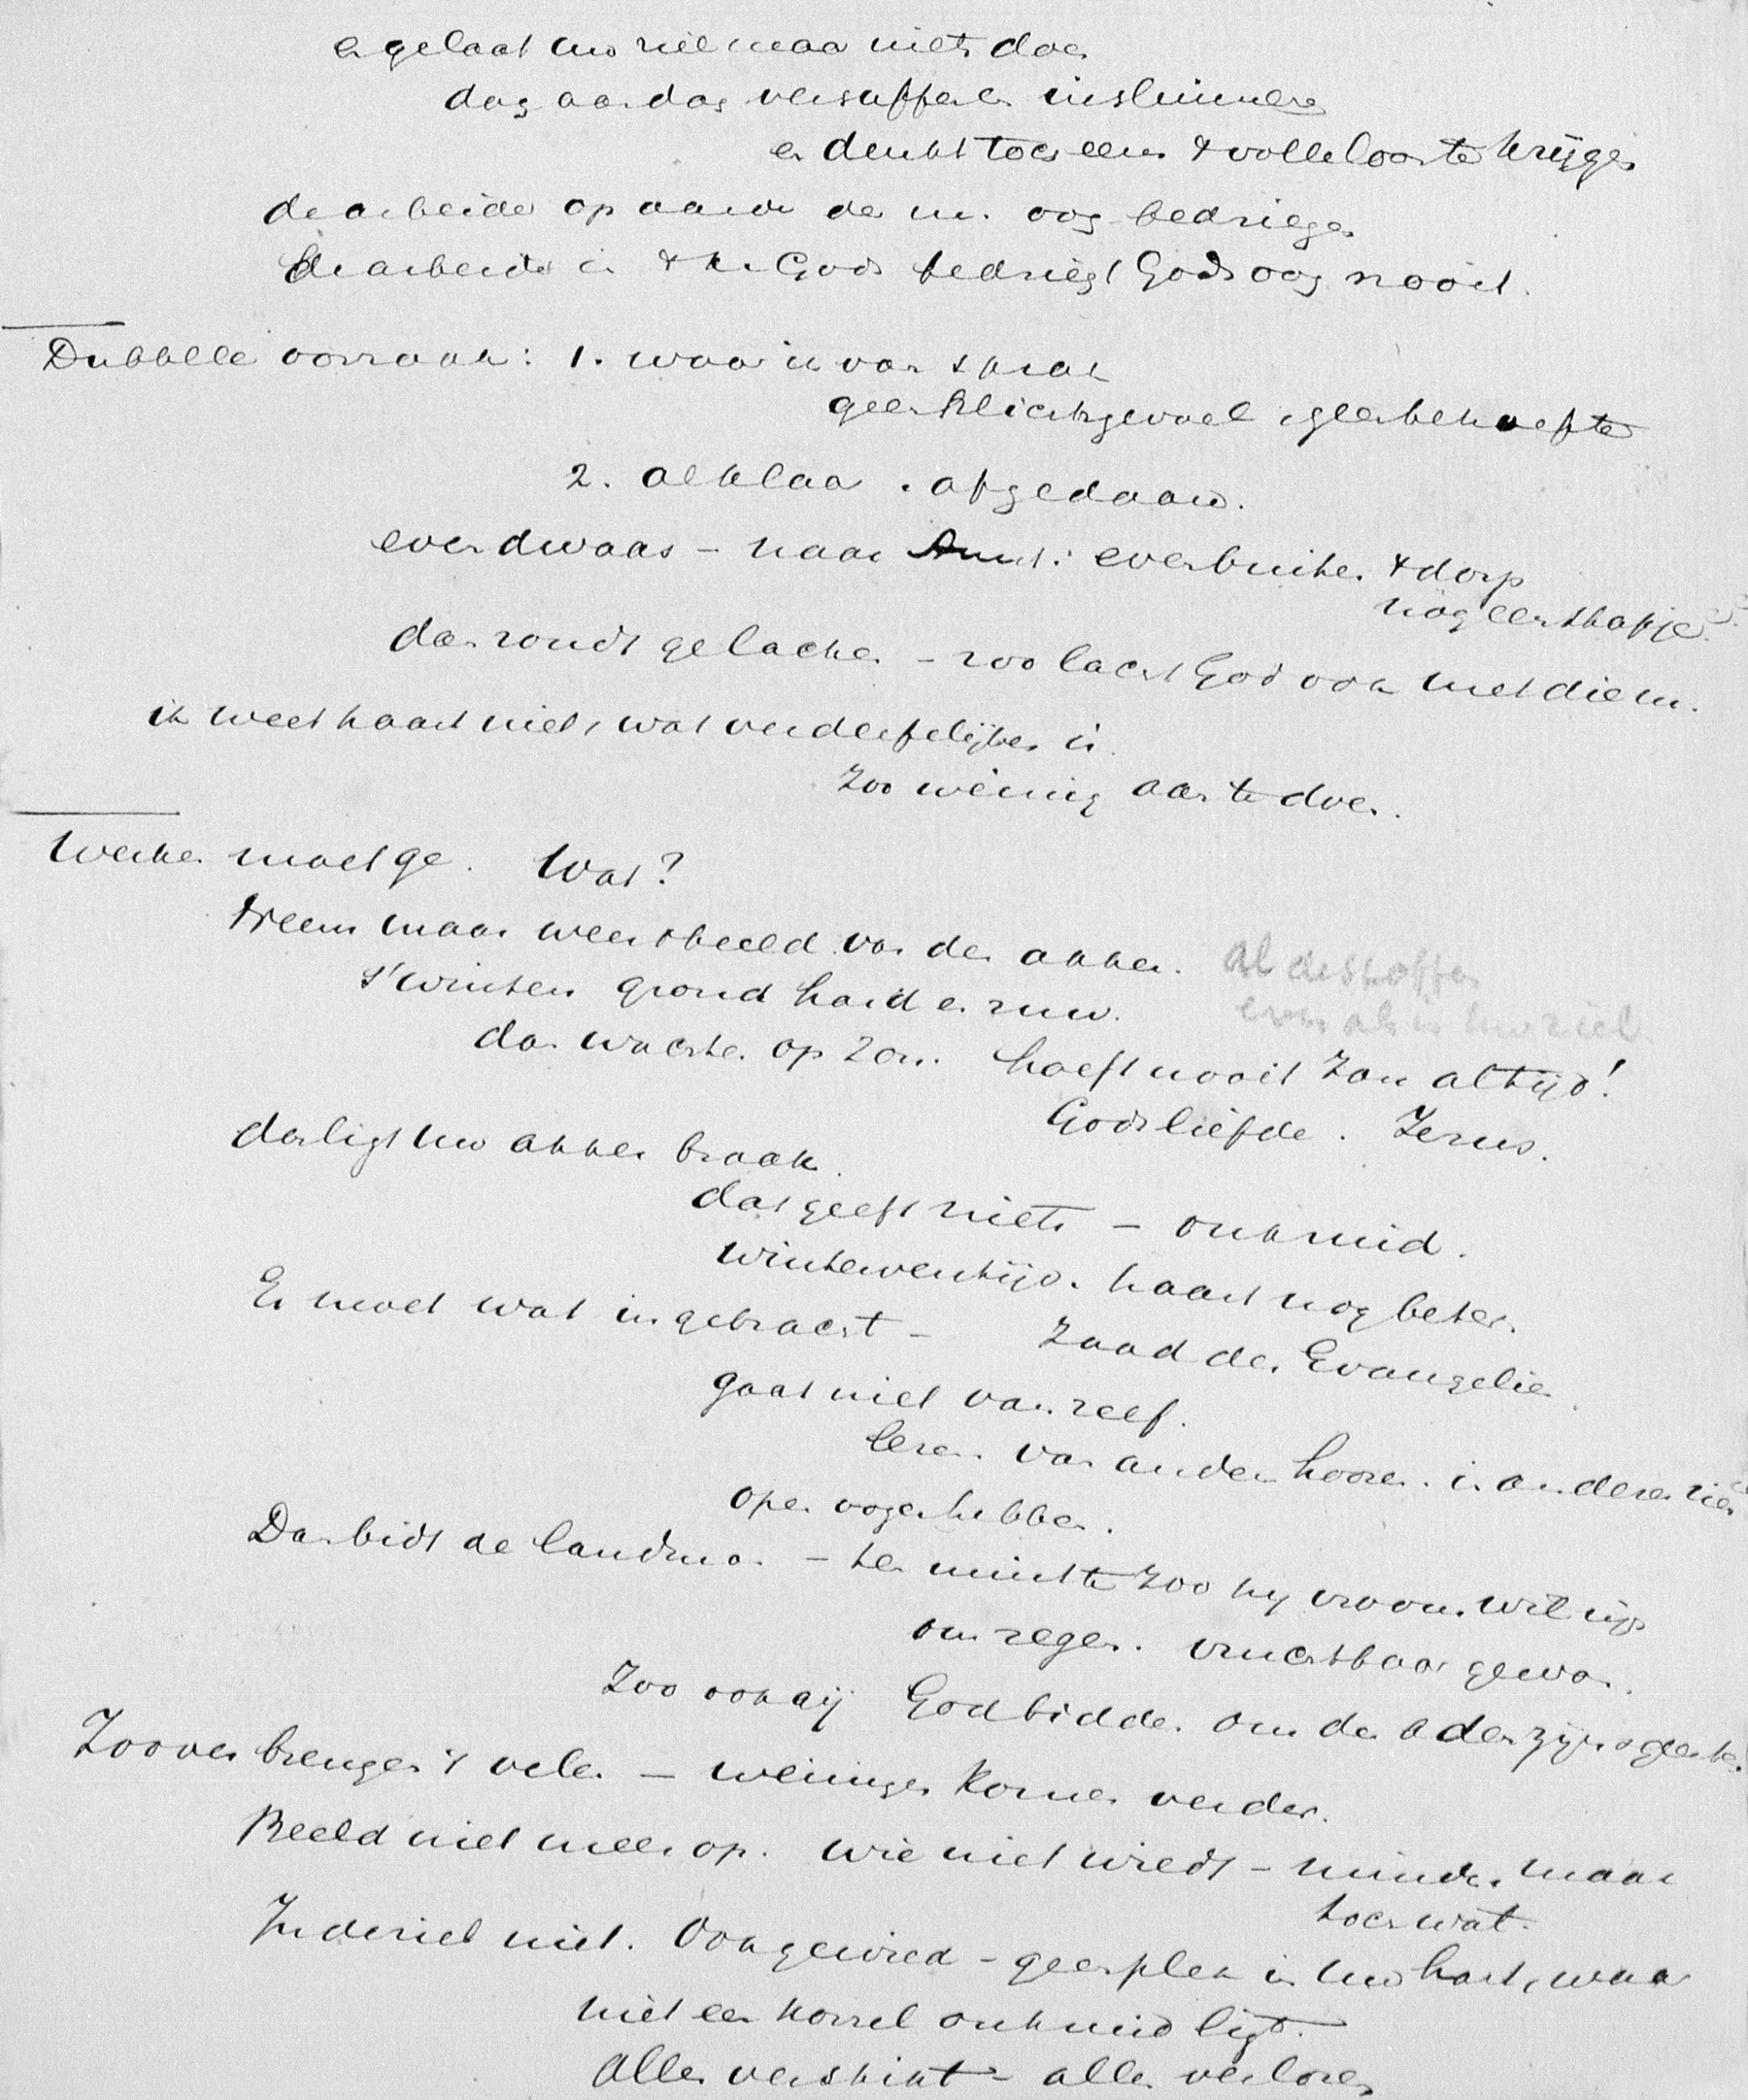 en gelaat uw ziel maar niets doen
dag aan dag versuffen en insluimeren
en denkt toch eens 't volle loon te krijgen
de arbeider op aarde de m. oog bedriegen
De arbeider in 't k. Gods bedriegt Gods oog nooit.
Dubbele oorzaak: 1. waar ik van sprak
geen plichtgevoel, geen behoefte
2. al klaar. afgedaan.
even dwaas – naar Amst: even buiten 't dorp
nog een stapje
dan zoudt ge lachen – zoo lacht God ook met die m.
ik weet haast niet, wat verderfelijker is.
Zoo weinig aan te doen.
Werken moet ge. Wat?
Neem maar weer 't beeld van den akker. Al de stoffen
even als in uw ziel
's winters grond hard en ruw.
dan wachten op zon. hoeft nooit zon altijd!
Gods liefde. Jezus.
dan ligt uw akker braak.
dat geeft niets – onkruid.
winterventijd. haast nog beter.
Er moet wat ingebracht – Zaad der Evangelie
gaat niet van zelf.
lezen van anderen hooren. in anderen zien
open oogen hebben.
Dan bidt de landman – ten minste zoo hij vroom wil zijn
om regen. vruchtbaar gewas.
Zoo ook gij God bidden om den adem zijns geestes.
Zoover brengen 't velen – weinigen komen verder.
Beeld niet meer op. Wie niet wiedt – minder maar
toch wat.
In de ziel niet. Ook gewied – geen plek in uw hart, waar
niet een korrel onkruid ligt.
Alles verstikt – alles verloren